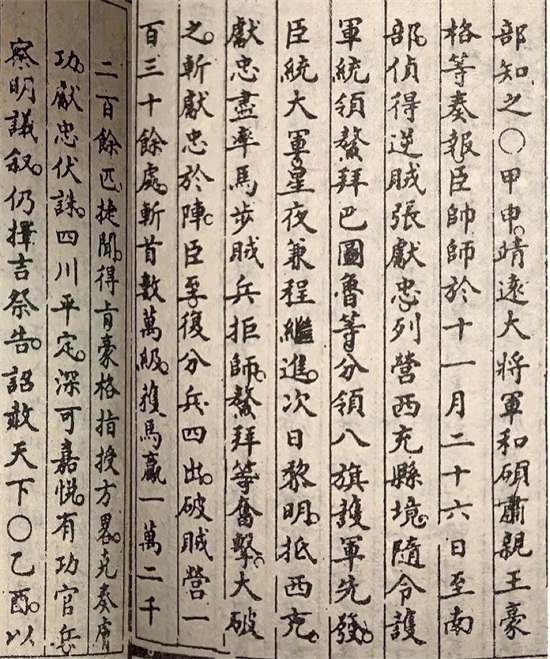 部知之〇甲申。靖遠大將軍和碩肅親王豪
格等奏報臣帥師於十一月二十六日至南
部。偵得逆賊張獻忠列營西充縣境。隨令護
軍統領鰲拜巴圖魯等分領八旗護軍先發。
臣統大軍星夜兼程繼進。次日黎明。抵西充。
獻忠盡率馬步賊兵拒師。鰲拜等奮擊。大破
之。斬獻忠於陣。臣至復分兵四出。破賊營一
百三十餘處。斬首數萬級。獲馬驘一萬二千
二百餘匹。捷聞。得旨豪格指授方畧。克奏膚
功。獻忠伏誅。四川平定。深可嘉悅。有功官兵
察明議敘。仍擇吉祭告。詔赦天下〇乙酉。以